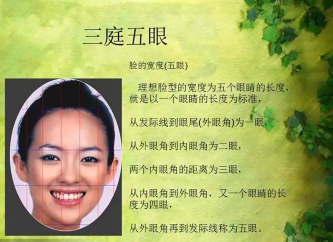 三庭五眼
脸的宽度(五眼)
理想脸型的宽度为五个眼睛的长度，
就是以一个眼睛的长度为标准，
从发际线到眼尾(外眼角)为一眼，
从外眼角到内眼角为二眼，
两个内眼角的距离为三眼，
从内眼角到外眼角，又一个眼睛的长
度为四眼，
从外眼角再到发际线称为五眼。